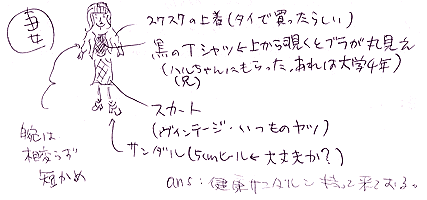 スケスケの上着(タイで買ったらしい)
黒のTシャツ←上から覗くとブラが丸見え
(ハルちゃんにもらった、あれは大学4年)
(兄)
スカート
(ヴィンテージ・いつものヤツ)
サンダル(5cmヒール←大丈夫か?)
腕は
相変らず
短かめ
ans:健康サンダルを持って来ておる。